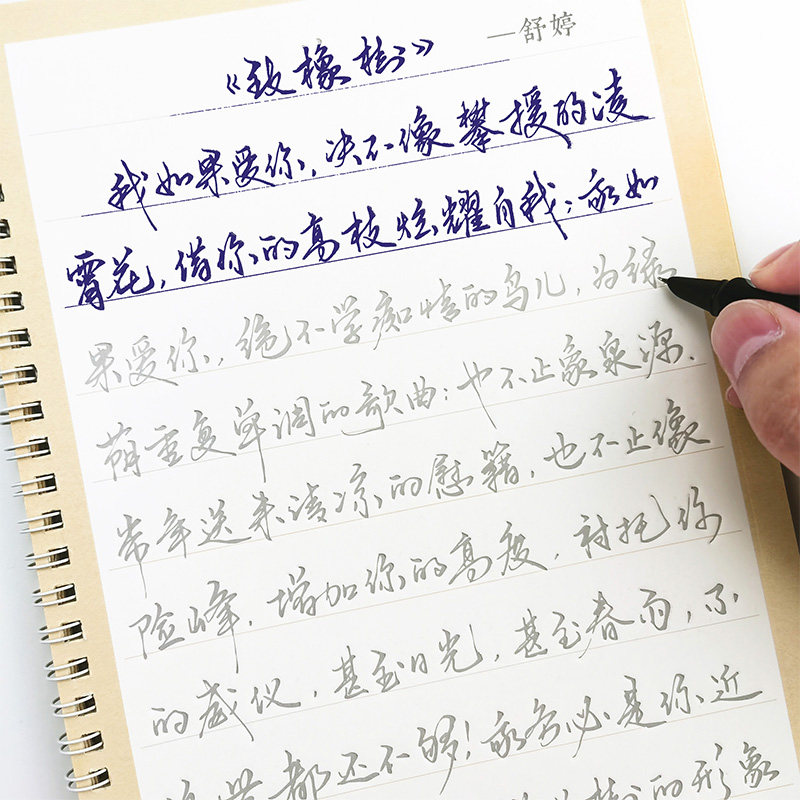 《致橡树》 —舒婷
我如果爱你，决不像攀援的凌
霄花，借你的高枝炫耀自我；我如
果爱你，绝不学痴情的鸟儿，为绿
荫重复单调的歌曲；也不止象泉源，
常年送来清凉的慰籍，也不止像
险峰，增加你的高度，衬托你
的威仪，甚至日光，甚至春雨，不
这些都还不够！我务必是你近
树的形象